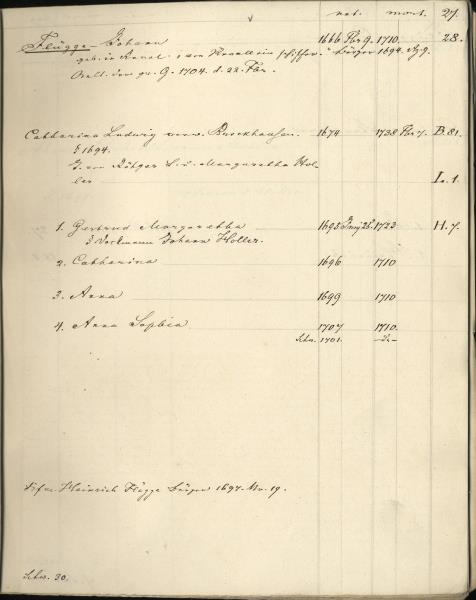 nat. mort. 27.
Flügge Johann 1666 Fbr 9. 1710. 28.
geb. in Reval, Bürger 1694
Aelt. der gr. G. 1704. d. 22. Fbr.
Catharina Ludwig verw. Burchhausen. 1674 1738 Fbr 7. B. 81.
1694.
T. von Rötger L. u. Margaretha Hol-
ler L. 1.
1. Gertrud Margaretha 1695 26. 1723 H. 7.
Johann Holler.
2. Catharina 1696 1710
3. Anna 1699 1710
4. Anna Sophia 1707 1710.
1701.
Heinrich Flügge Bürger 1697. 19.
30.